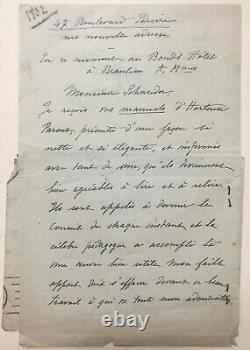 1902
47 Boulevard Pereire
ma nouvelle adresse
En ce moment au Bond's Hôtel
à Beaulieu A. Mmes
Monsieur Schneider
Je reçois vos manuels d'Hortense
Parent, présentés d'une façon si
nette et si élégante, et imprimés
avec tant de soin, qu'ils deviennent
bien agréables à lire et à relire.
Ils sont appelés à devenir le
conseil de chaque instant et la
célèbre pédagogue a accompli là
une œuvre bien utile. Mon faible
apport doit s'effacer devant ce beau
travail à qui va toute mon admiration
ebay